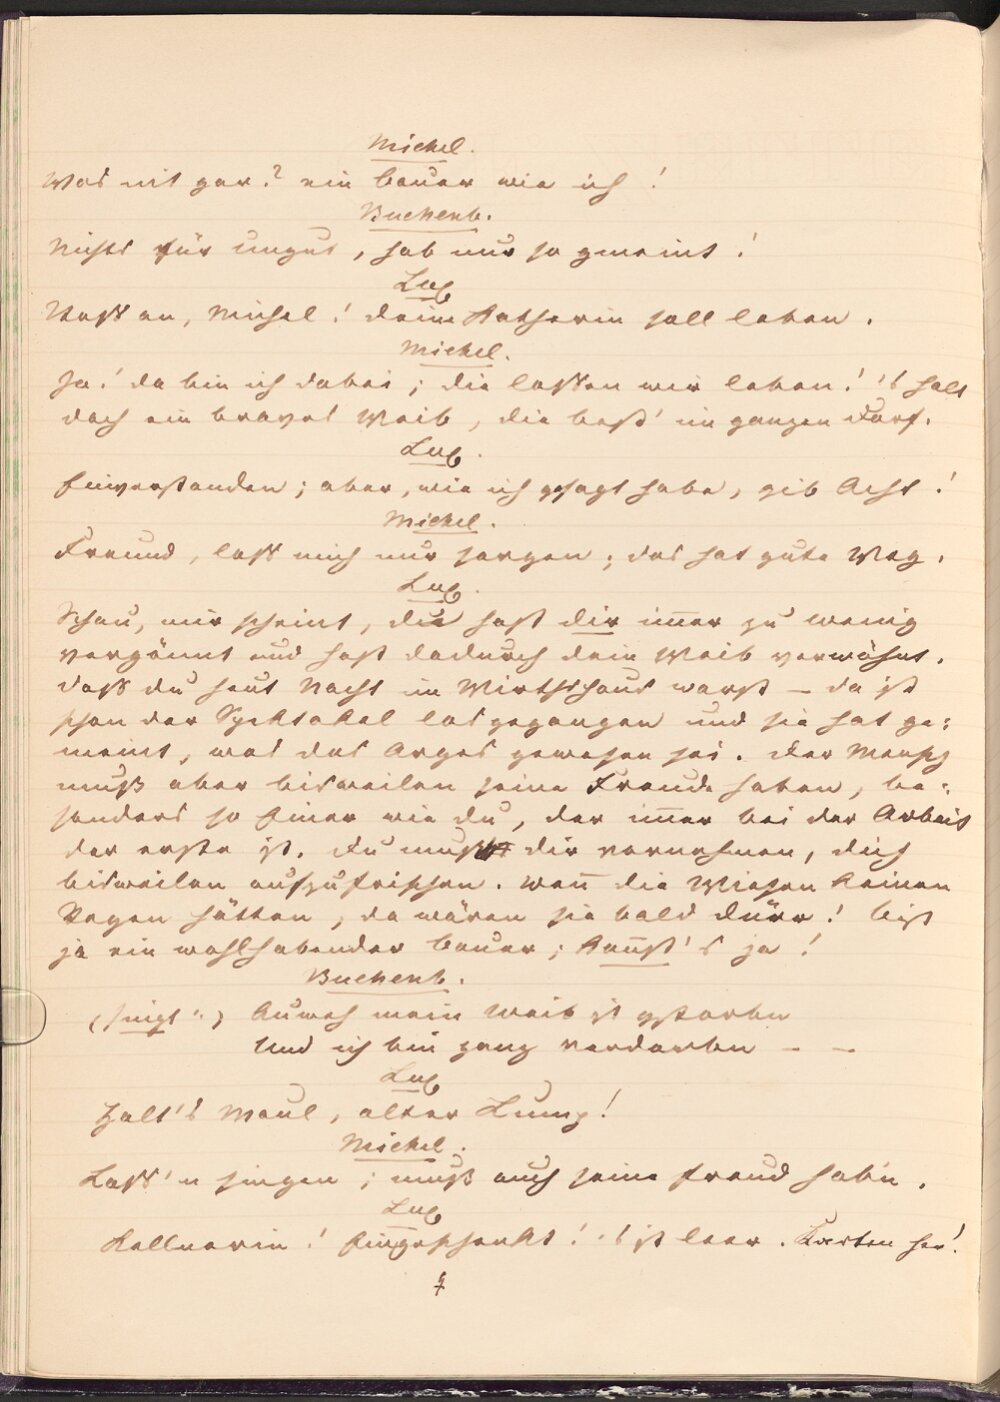 Michel.
Was nit gar? ein Bauer wie ich!
Buchenb.
Nichts für ungut, hab nur so gemeint!
Lux
Stoß an, Michel! deine Katherin soll leben.
Michel.
Ja! da bin ich dabei; die lassen wir leben! 's halt
doch ein braves Weib, die beß' im ganzen Dorf.
Lux.
Einverstanden; aber, wie ich gesagt habe, gib Acht!
Michel.
Freund, laß mich nur sorgen; das hat gute Weg.
Lux.
Schau, mir scheint, du hast dir im̅er zu wenig
vergönnt und hast dadurch dein Weib verwöhnt.
Daß du heut Nacht im Wirthshaus warst – da ist
schon der Spektakel losgegangen und sie hat ge=
meint, was das Arges gewesen sei. Der Mensch
muß aber bisweilen seine Freude haben, be=
sonders so Einer wie du, der im̅er bei der Arbeit
der erste ist. Du mußt dir vornehmen, dich
bisweilen aufzufrischen. Wen̅ die Wiesen keinen
Regen hätten, da wären sie bald dürr! bist
ja ein wohlhabender Bauer; kan̅st's ja!
Buchenb.
(singt) Auweh mein Weib ist gstorben
Und ich bin ganz verdorben – –
Lux
Halt's Maul, alter Lump!
Michel.
Lass'n singen; muß auch seine Freud hab'n.
Lux
Kellnerin! Eingeschenkt! 's ist leer. Karten her!